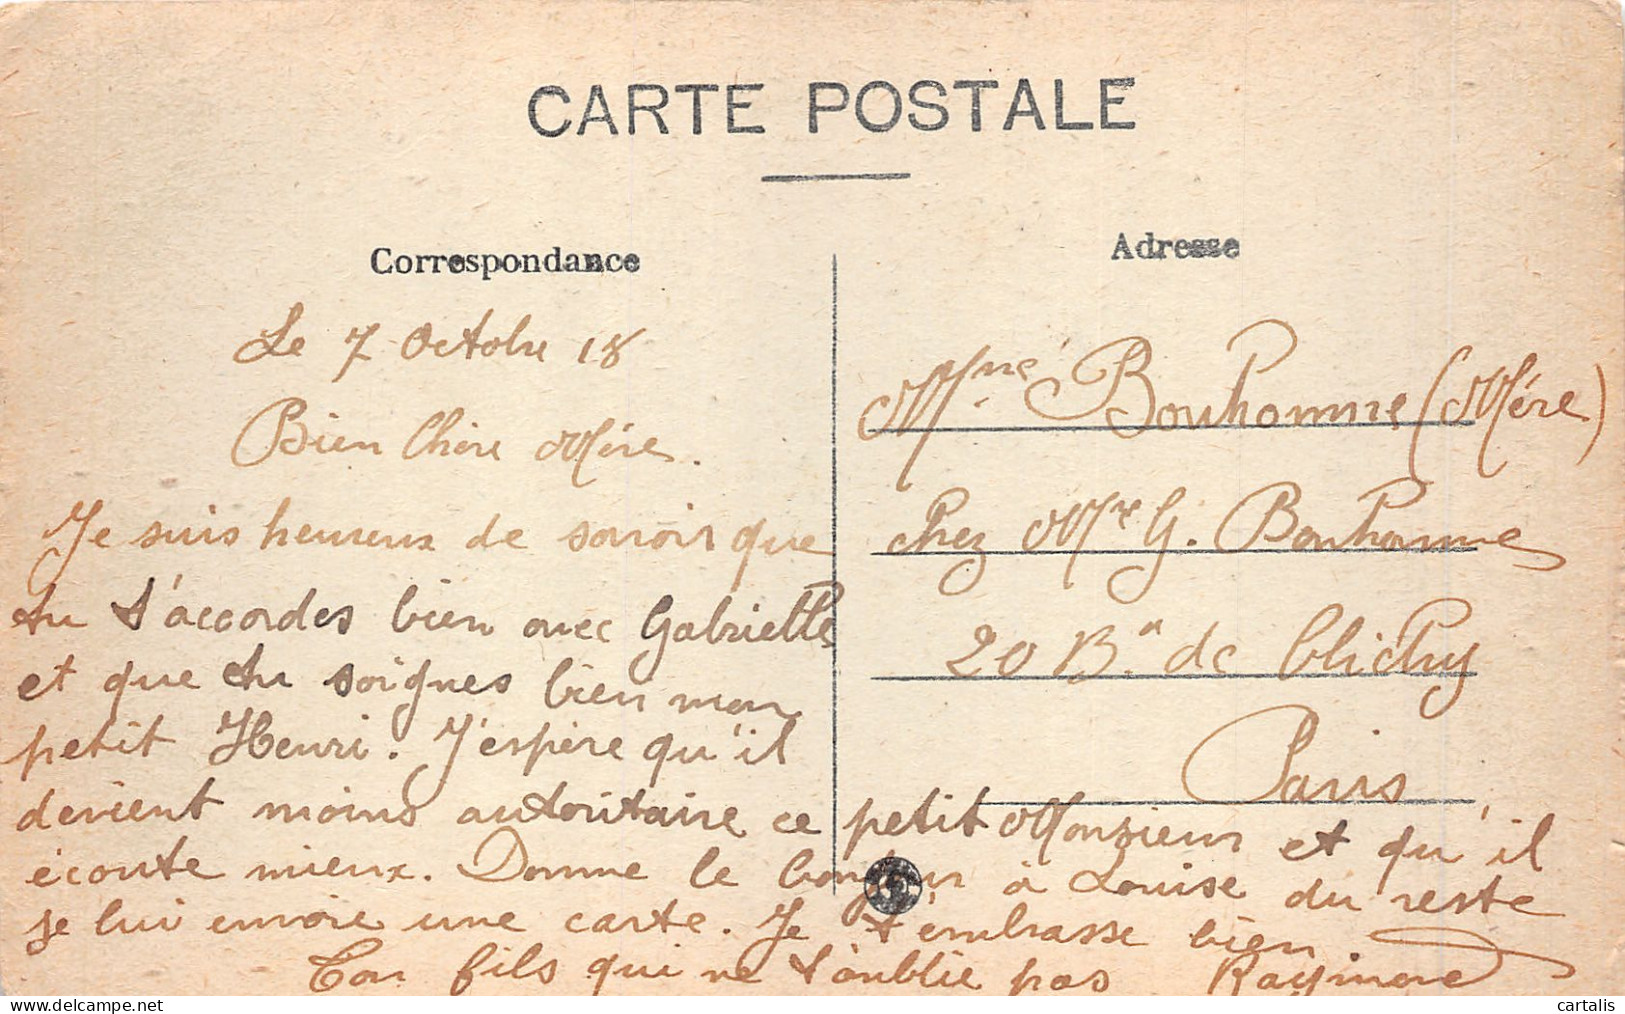 CARTE POSTALE
Correspondance
Adresse
Le 7 Octobre 18
Bien Chère Mère.
Je suis heureux de savoir que
tu t'accordes bien avec Gabrielle
et que tu soignes bien mon
petit Henri. J'espère qu'il
devient moins autoritaire ce petit Monsieur et qu'il
écoute mieux. Donne le bonjour à Louise du reste
je lui envoie une carte. Je t'embrasse bien.
Ton fils qui ne t'oublie pas Raymond
Mme Bonhomme (Mère)
Chez Mr G. Bonhomme
20 Bd de Clichy
Paris
cartalis